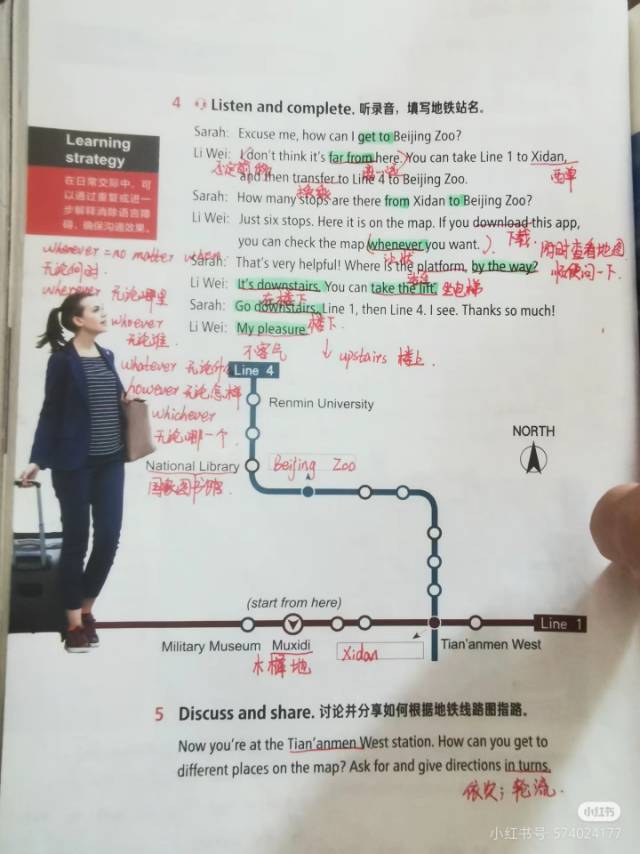 4 Listen and complete. 听录音，填写地铁站名。
Learning strategy
在日常交际中，可
以通过重复或进一
步解释消除语言障
碍，确保沟通效果。
Sarah: Excuse me, how can I get to Beijing Zoo?
Li Wei: I don't think it's far from here. You can take Line 1 to Xidan,
西单
and then transfer to Line 4 to Beijing Zoo.
换乘
Sarah: How many stops are there from Xidan to Beijing Zoo?
Li Wei: Just six stops. Here it is on the map. If you download this app,
下载
you can check the map (whenever you want.)
随时查看地图
Sarah: That's very helpful! Where is the platform, by the way?
顺便问一下.
Li Wei: It's downstairs. You can take the lift. 坐电梯
在楼下
Sarah: Go downstairs, Line 1, then Line 4. I see. Thanks so much!
楼下
Li Wei: My pleasure.
不客气
↓ upstairs 楼上.
whenever = no matter when
无论何时.
wherever 无论哪里
whoever
无论谁.
whatever 无论什
however 无论怎样
whichever
无论哪一个.
Line 4
Renmin University
NORTH
National Library
国家图书馆.
Beijing Zoo
(start from here)
Line 1
Military Museum
Muxidi
木樨地
Xidan
Tian'anmen West
5 Discuss and share. 讨论并分享如何根据地铁线路图指路。
Now you're at the Tian'anmen West station. How can you get to
different places on the map? Ask for and give directions in turns.
依次；轮流.
小红书
小红书号: 574024177